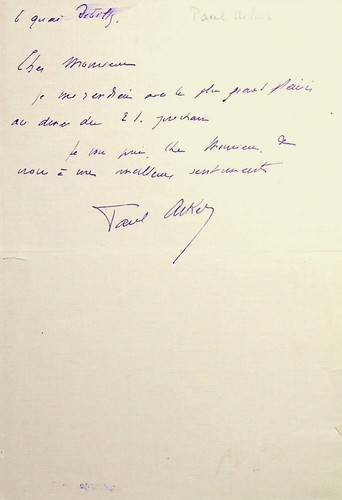 6 quai Debilly
Paul Acker
Cher Monsieur
je me rendrai avec le plus grand plaisir
au diner du 21. prochain
Je vous prie, cher Monsieur, de
croire à mes meilleurs sentiments
Paul Acker